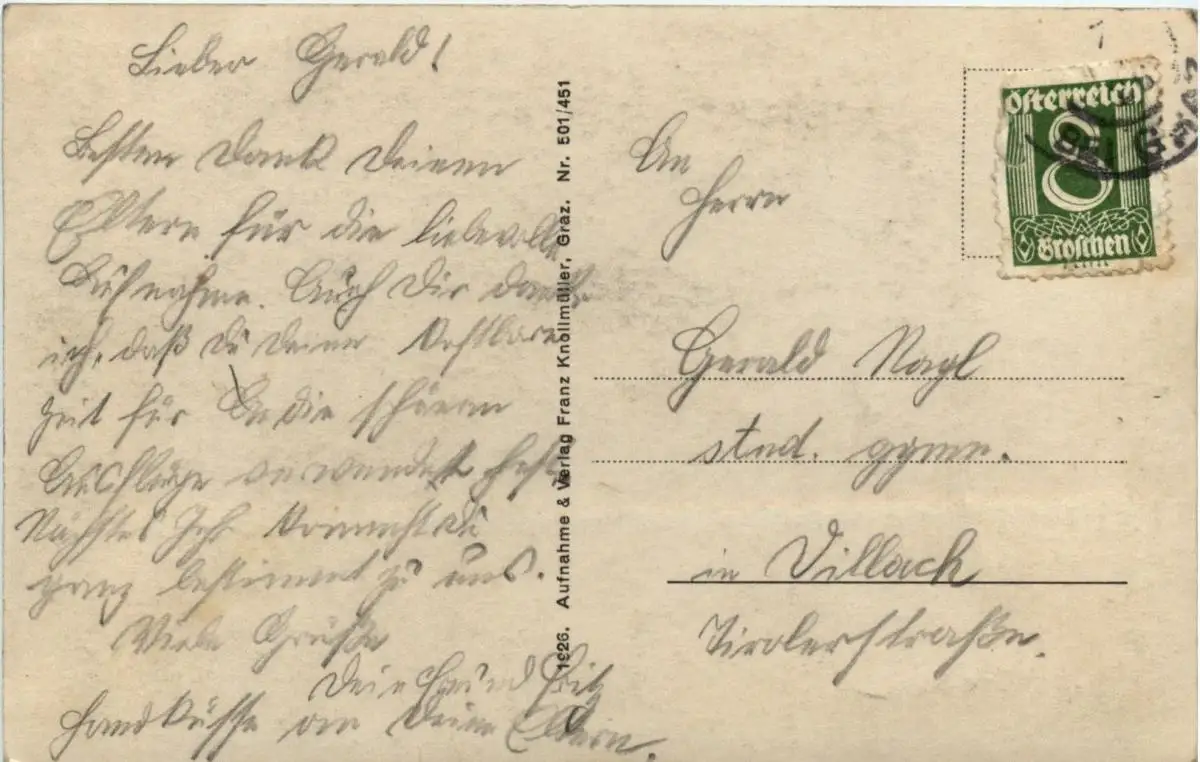 Lieber Gerald!
Besten Dank Deinen
Eltern für die liebevolle
Aufnahme. Auch Dir danke
ich, daß Du Deine kostbare
Zeit für die schönen
Ausflüge verwendet hast.
Nächstes Jahr kommst Du
ganz bestimmt zu uns.
Viele Grüße
Dein Freund Fritz
Handküsse an Deine Eltern.
1926. Aufnahme & Verlag Franz Knollmüller, Graz. Nr. 501/451
Österreich
8
Groschen
GRAZ
An
Herrn
Gerald Nagl
stud. gymn.
in Villach
Tirolerstraße.